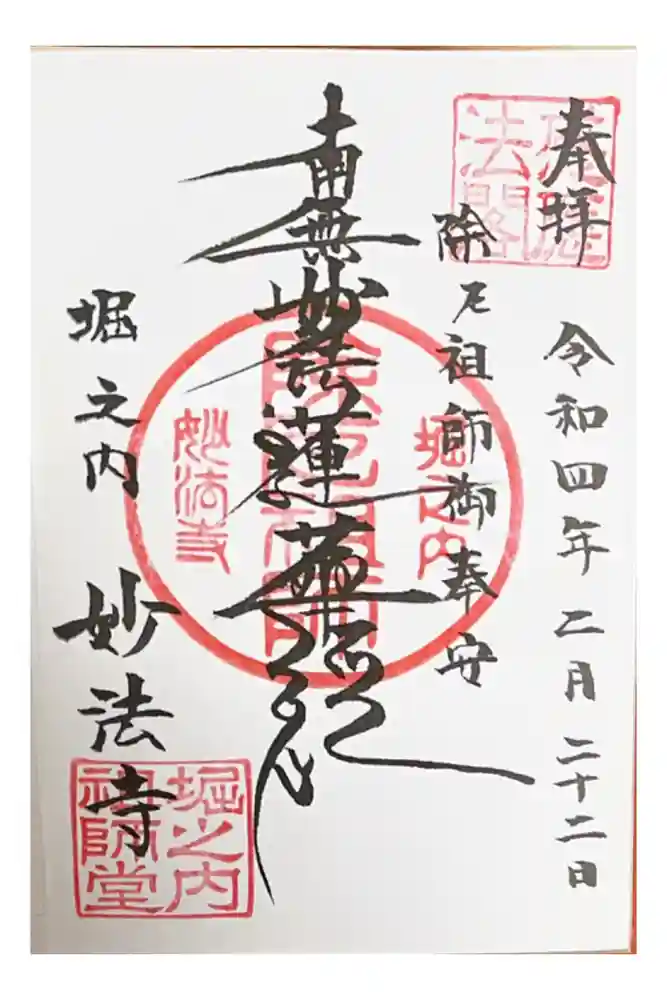 奉拝
令和四年二月二十二日
除厄祖師御奉安
南無妙法蓮華経
堀之内
妙法寺
堀之内
除厄祖師
妙法寺
堀之内
祖師堂